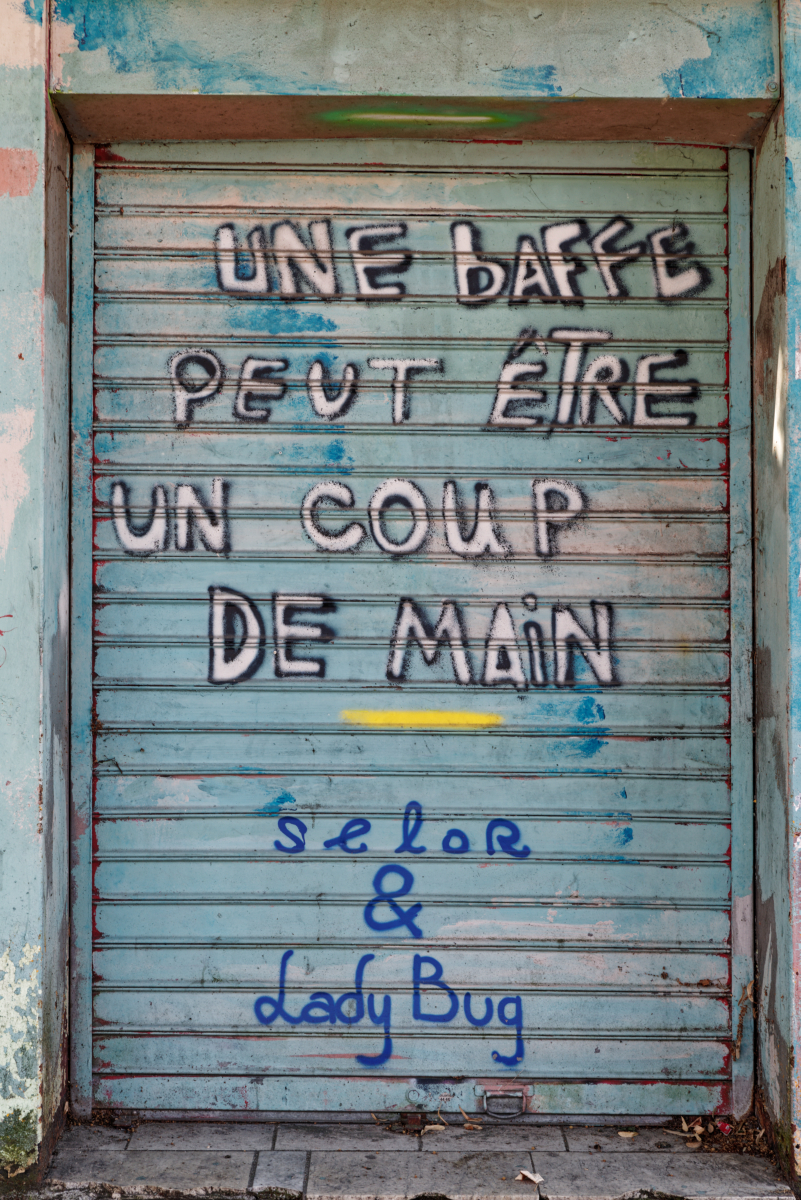 UNE bAFFE
PEUT ÊTRE
UN COUP
DE MAiN
selOR
&
Lady Bug